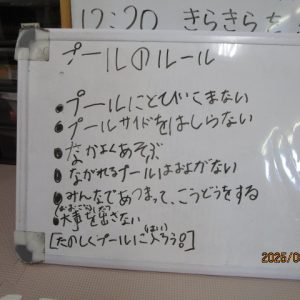 12:20 きらきら
プールのルール
・プールにとびこまない
・プールサイドをはしらない
・なかよくあそぶ
・ながれるプールはおよがない
・みんなであつまって、こうどうをする
・大事を出さない
[たのしくプールに入ろう!]
はい
2025/0